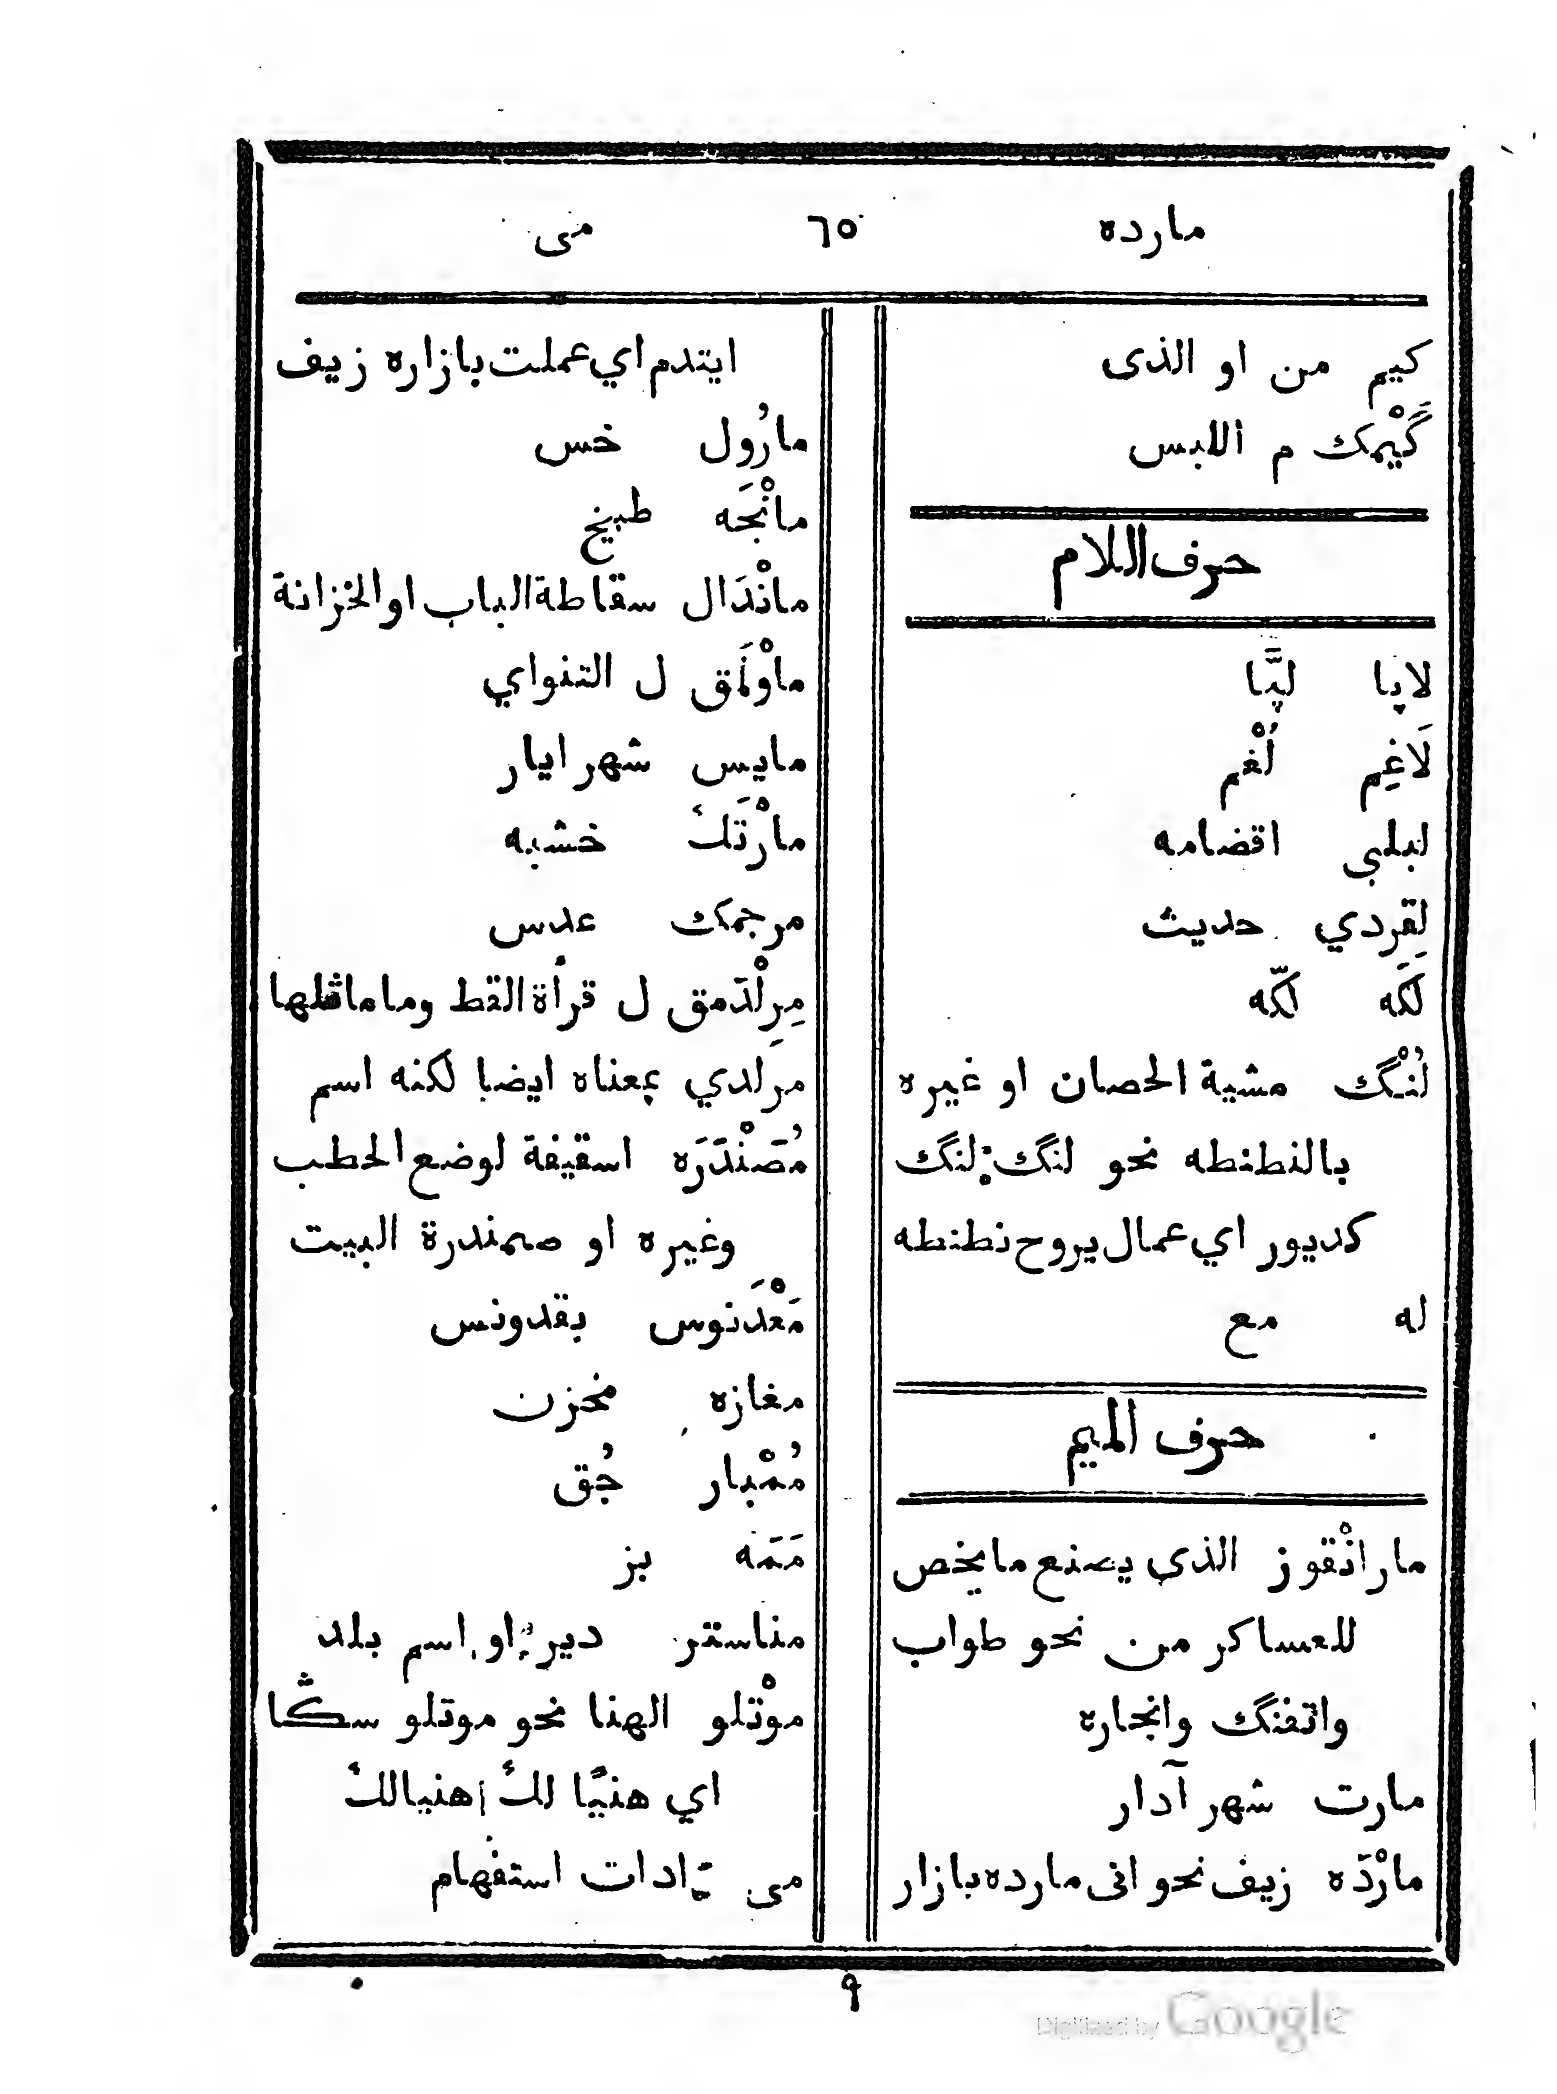 مارده ٦٥ مى
كيم من او الذى
كَيْمك م اللبس
حرف اللام
لاپا لپَّا
لَاغِم لُغْم
لبلبى اقضامه
لِقردي حديث
لَكَه لكّه
لُنْگ مشية الحصان او غيره
بالنطنطه نحو لنگ لنگ
كديور اي عمال يروح نطنطه
له مع
حرف الميم
مارانْقوز الذى يصنع مايخص
للعساكر من نحو طواب
واتفنگ وانجاره
مارت شهر آدار
مارْدَه زيف نحو انى مارده بازار
ايتدم اي عملت بازاره زيف
مارُول خس
مانْجَه طبيخ
مانْدَال سقاطة الباب او الخزانة
ماوْلَمَق ل التنواي
مايس شهر ايار
مارْتَك خشبه
مرجمك عدس
مِرِلْدَمق ل قرأة القط وما ماثلها
مرلدي بمعناه ايضا لكنه اسم
مُصَنْدَرَه اسقيفة لوضع الحطب
وغيره او صمندرة البيت
مَعْدَنوس بقدونس
مغازه مخزن
مُمْبار جُق
مَمَه بز
مناستر دير او اسم بلد
موْتلو الهنا نحو موتلو سكا
اي هنيًا لك اهنيالك
مى ادات استفهام
٩
Digitized by Google